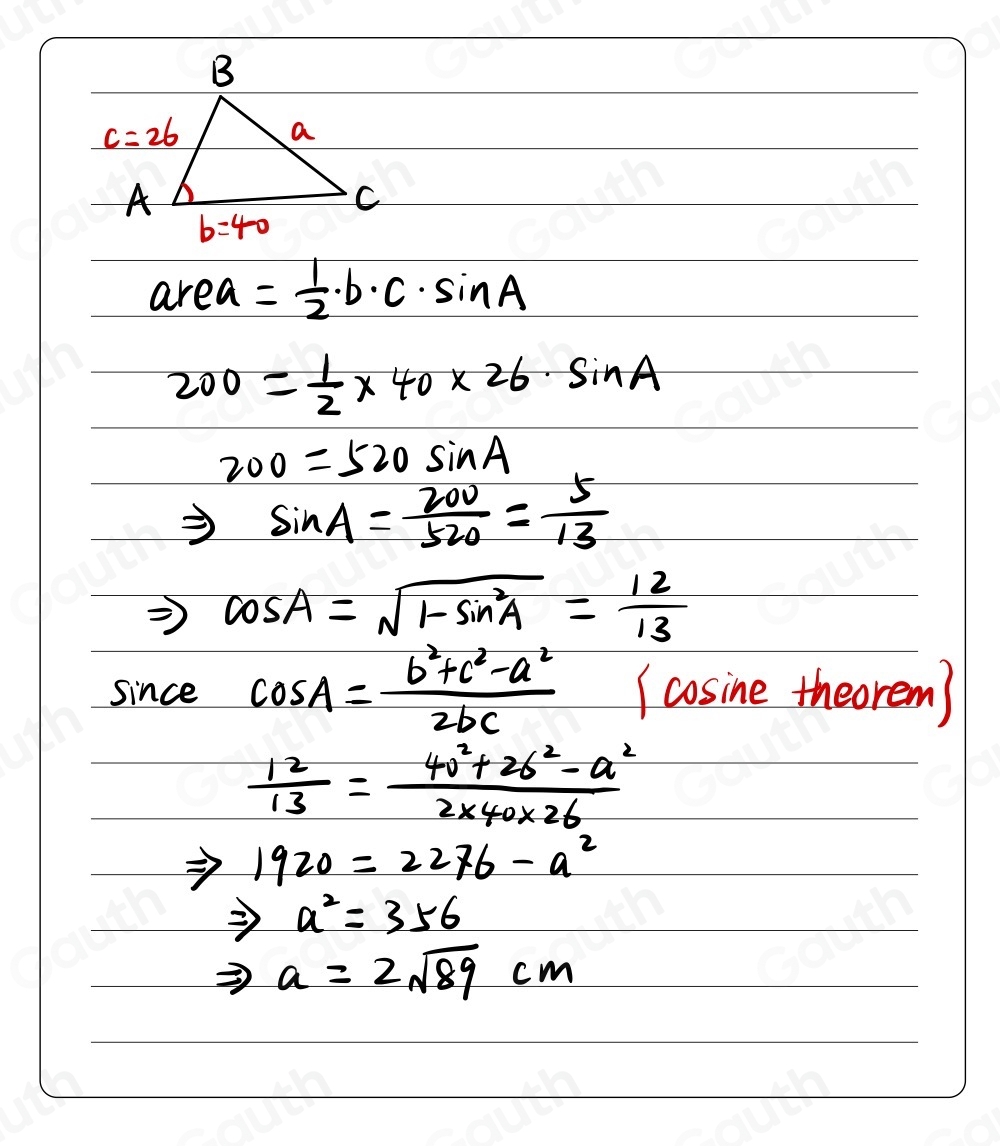 B
c=26
a
A
C
b=40
area = 1/2 · b · c · sin A
200 = 1/2 × 40 × 26 · sin A
200 = 520 sin A
⇒ sin A = 200/520 = 5/13
⇒ cos A = √(1-sin²A) = 12/13
since cos A = (b²+c²-a²)/(2bc) {cosine theorem}
12/13 = (40²+26²-a²)/(2×40×26)
⇒ 1920 = 2276 - a²
⇒ a² = 356
⇒ a = 2√89 cm
Gauth